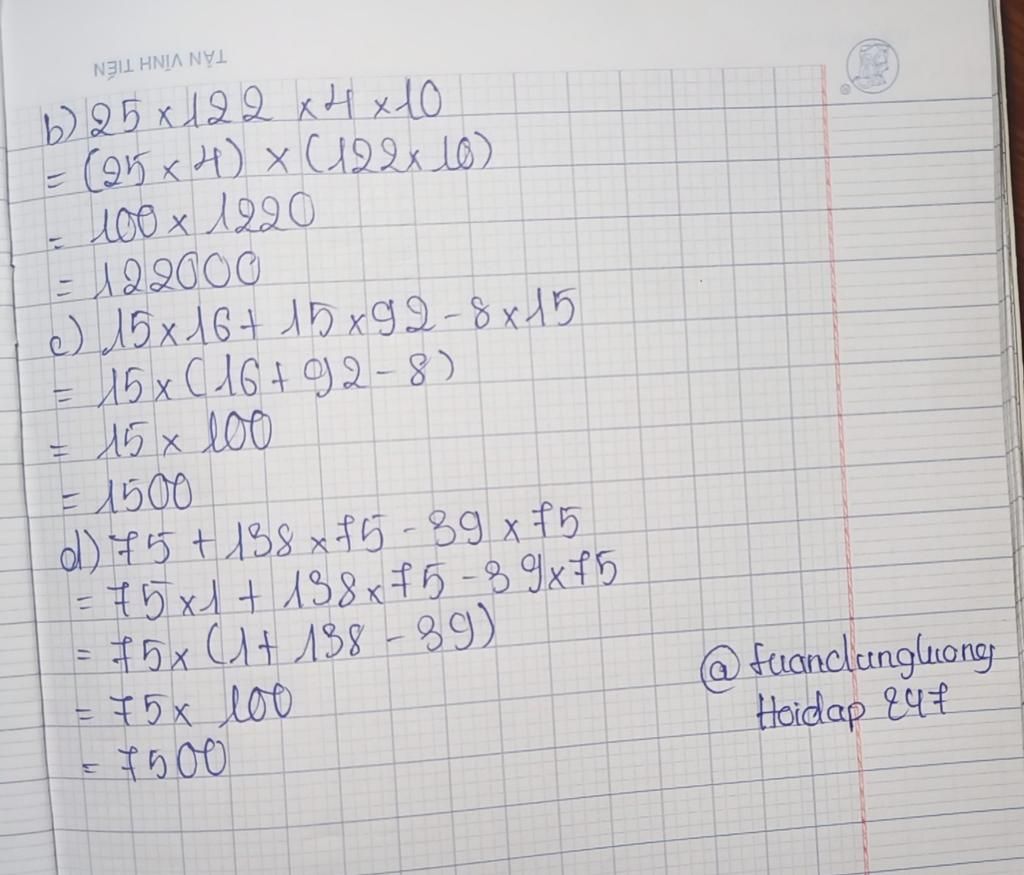 TÂN VĨNH TIẾN
b) 25 x 122 x 4 x 10
= (25 x 4) x (122 x 10)
= 100 x 1220
= 122000
c) 15 x 16 + 15 x 92 - 8 x 15
= 15 x (16 + 92 - 8)
= 15 x 100
= 1500
d) 75 + 138 x 75 - 39 x 75
= 75 x 1 + 138 x 75 - 39 x 75
= 75 x (1 + 138 - 39)
= 75 x 100
= 7500
@ tuandungluong
Hoidap 247